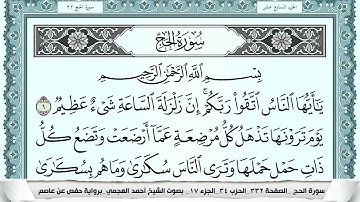 الجزء السابع عشر
سورة الحج ٢٢
سُورَةُ الحَجِّ
بِسْمِ اللَّهِ الرَّحْمَٰنِ الرَّحِيمِ
يَٰٓأَيُّهَا النَّاسُ اتَّقُوا۟ رَبَّكُمْ ۚ إِنَّ زَلْزَلَةَ السَّاعَةِ شَىْءٌ عَظِيمٌ ١
يَوْمَ تَرَوْنَهَا تَذْهَلُ كُلُّ مُرْضِعَةٍ عَمَّآ أَرْضَعَتْ وَتَضَعُ كُلُّ
ذَاتِ حَمْلٍ حَمْلَهَا وَتَرَى النَّاسَ سُكَٰرَىٰ وَمَا هُم بِسُكَٰرَىٰ
سورة الحج _ الصفحة ٣٣٢_ الحزب ٣٤_ الجزء ١٧_ بصوت الشيخ أحمد العجمي_ برواية حفص عن عاصم